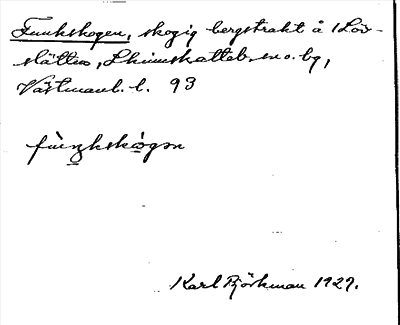 Funkskogen, skogig bergstrakt å 1 Löv-
slätten, L. Skinnskatteb. sn o. bg,
Västmanl. l. 93
fùnkskògən
Karl Björkman 1927.